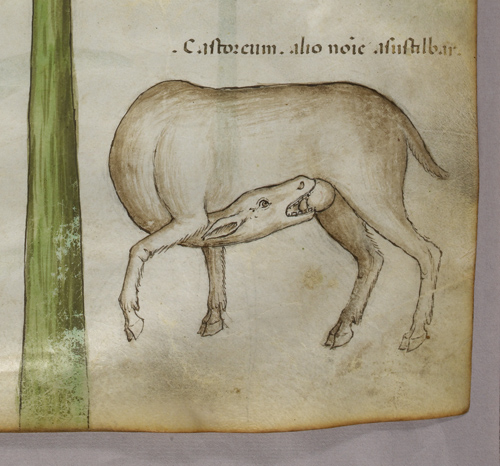 . Castoreum . alio noīe asustilbar.